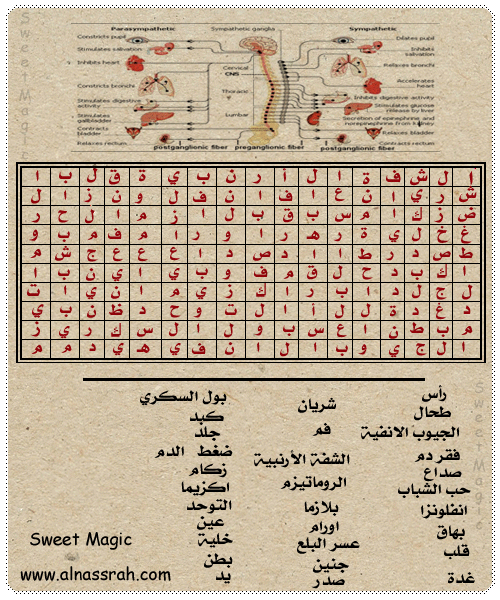 Parasympathetic
Sympathetic ganglia
Sympathetic
Constricts pupil
Stimulates salvation
Inhibits heart
Constricts bronchi
Stimulates digestive activity
Stimulates gallbladder
Contracts bladder
Relaxes rectum
Cervical
CNS
Thoracic
Lumbar
Dilates pupil
Inhibits salvation
Relaxes bronchi
Accelerates heart
Inhibits digestive activity
Stimulates glucose release by liver
Secretion of epinephrine and norepinephrine from kidney
Relaxes bladder
Contracts rectum
postganglionic fiber
preganglionic fiber
postganglionic fiber
ا ل ش ف ة ا ل أ ر ن ب ي ة ق ل ب ا
ش ر ي ا ن ع ا ف ا ن ف ل و ن ز ا ل
ض ز ك ا م س ب ق ب ل ا ز م ا ل ح ر
غ خ ل ي ة ر ه ر ا و ر ا م ف م ب و
ط ص د ر ط ا ا د ص د ا ع ع ع ج ش م
ا ك ب د ح ل ق م ف و ب ي ا ي ن ب ا
ل ج ل د ا ب ر ا ك ز ي م ا ن ي ا ت
د غ د ة ل ل أ ا ل ت و ح د ظ ن ب ي
م ب ط ن ا ع س ب و ل ا ل س ك ر ي ز
ا ل ج ي و ب ا ل ا ن ف ي ه ي د م م
رأس
طحال
الجيوب الانفية
فقر دم
صداع
حب الشباب
انفلونزا
بهاق
قلب
غدة
شريان
فم
الشفة الأرنبية
الروماتيزم
بلازما
اورام
عسر البلع
جنين
صدر
بول السكري
كبد
جلد
ضغط الدم
زكام
اكزيما
التوحد
عين
خلية
بطن
يد
Sweet Magic
www.alnassrah.com
Sweet Magic
Sweet Magic